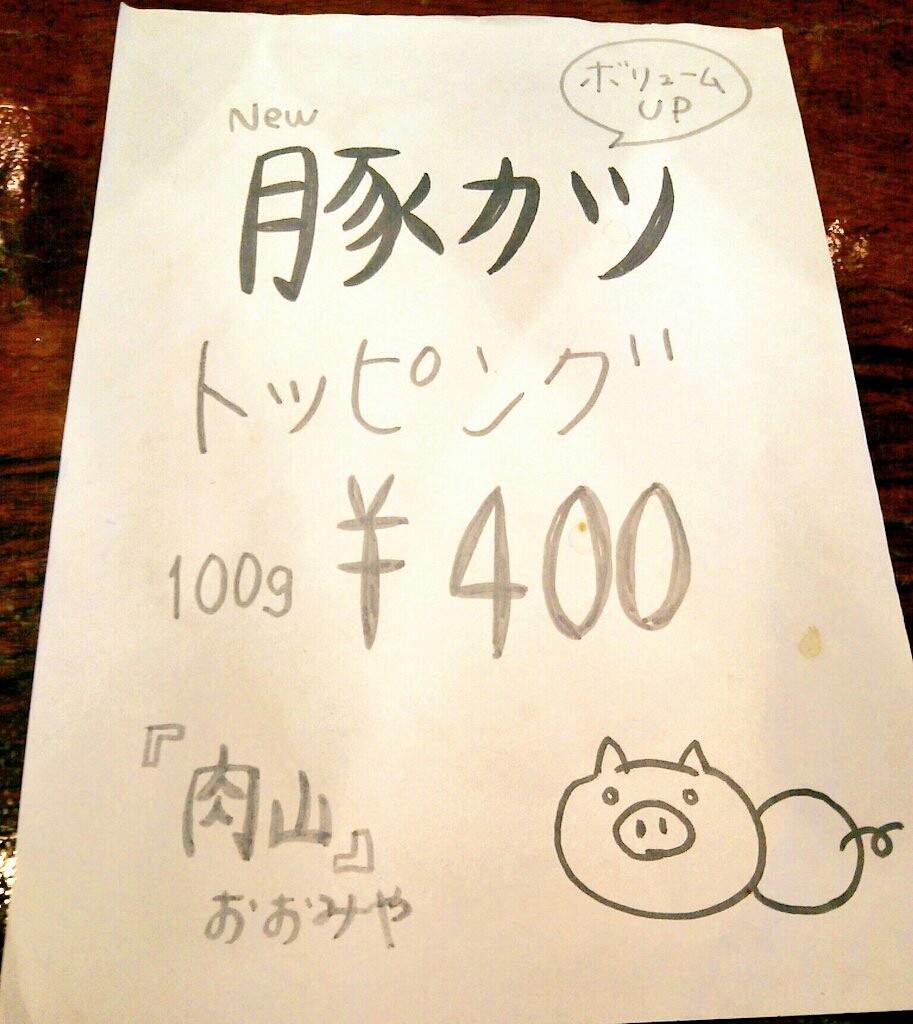 ボリューム
UP
New
豚カツ
トッピング
100g ¥400
『肉山』
おおみや